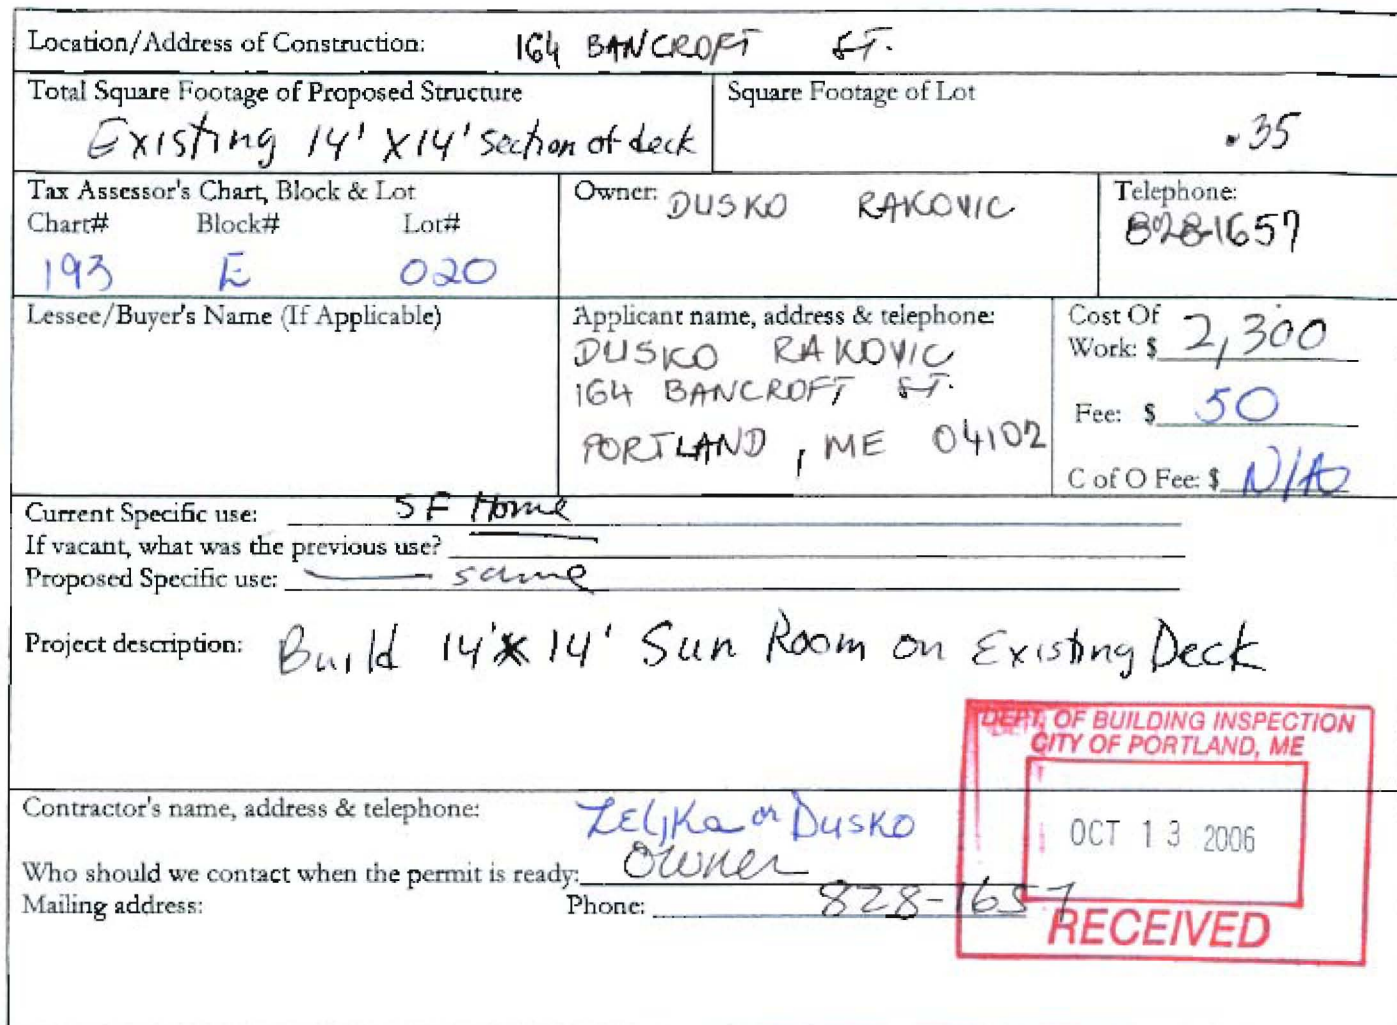 Location/Address of Construction: 164 BANCROFT ST.
Total Square Footage of Proposed Structure
Existing 14' X 14' section of deck
Square Footage of Lot
.35
Tax Assessor's Chart, Block & Lot
Chart# Block# Lot#
193 E 020
Owner: DUSKO RAKOVIC
Telephone:
828-1657
Lessee/Buyer's Name (If Applicable)
Applicant name, address & telephone:
DUSKO RAKOVIC
164 BANCROFT ST.
PORTLAND, ME 04102
Cost Of
Work: $ 2,300
Fee: $ 50
C of O Fee: $ N/A
Current Specific use: SF Home
If vacant, what was the previous use?
Proposed Specific use: same
Project description: Build 14' X 14' Sun Room on Existing Deck
DEPT. OF BUILDING INSPECTION
CITY OF PORTLAND, ME
OCT 13 2006
RECEIVED
Contractor's name, address & telephone: Zeljka or Dusko
Who should we contact when the permit is ready: Owner
Mailing address: Phone: 828-1657